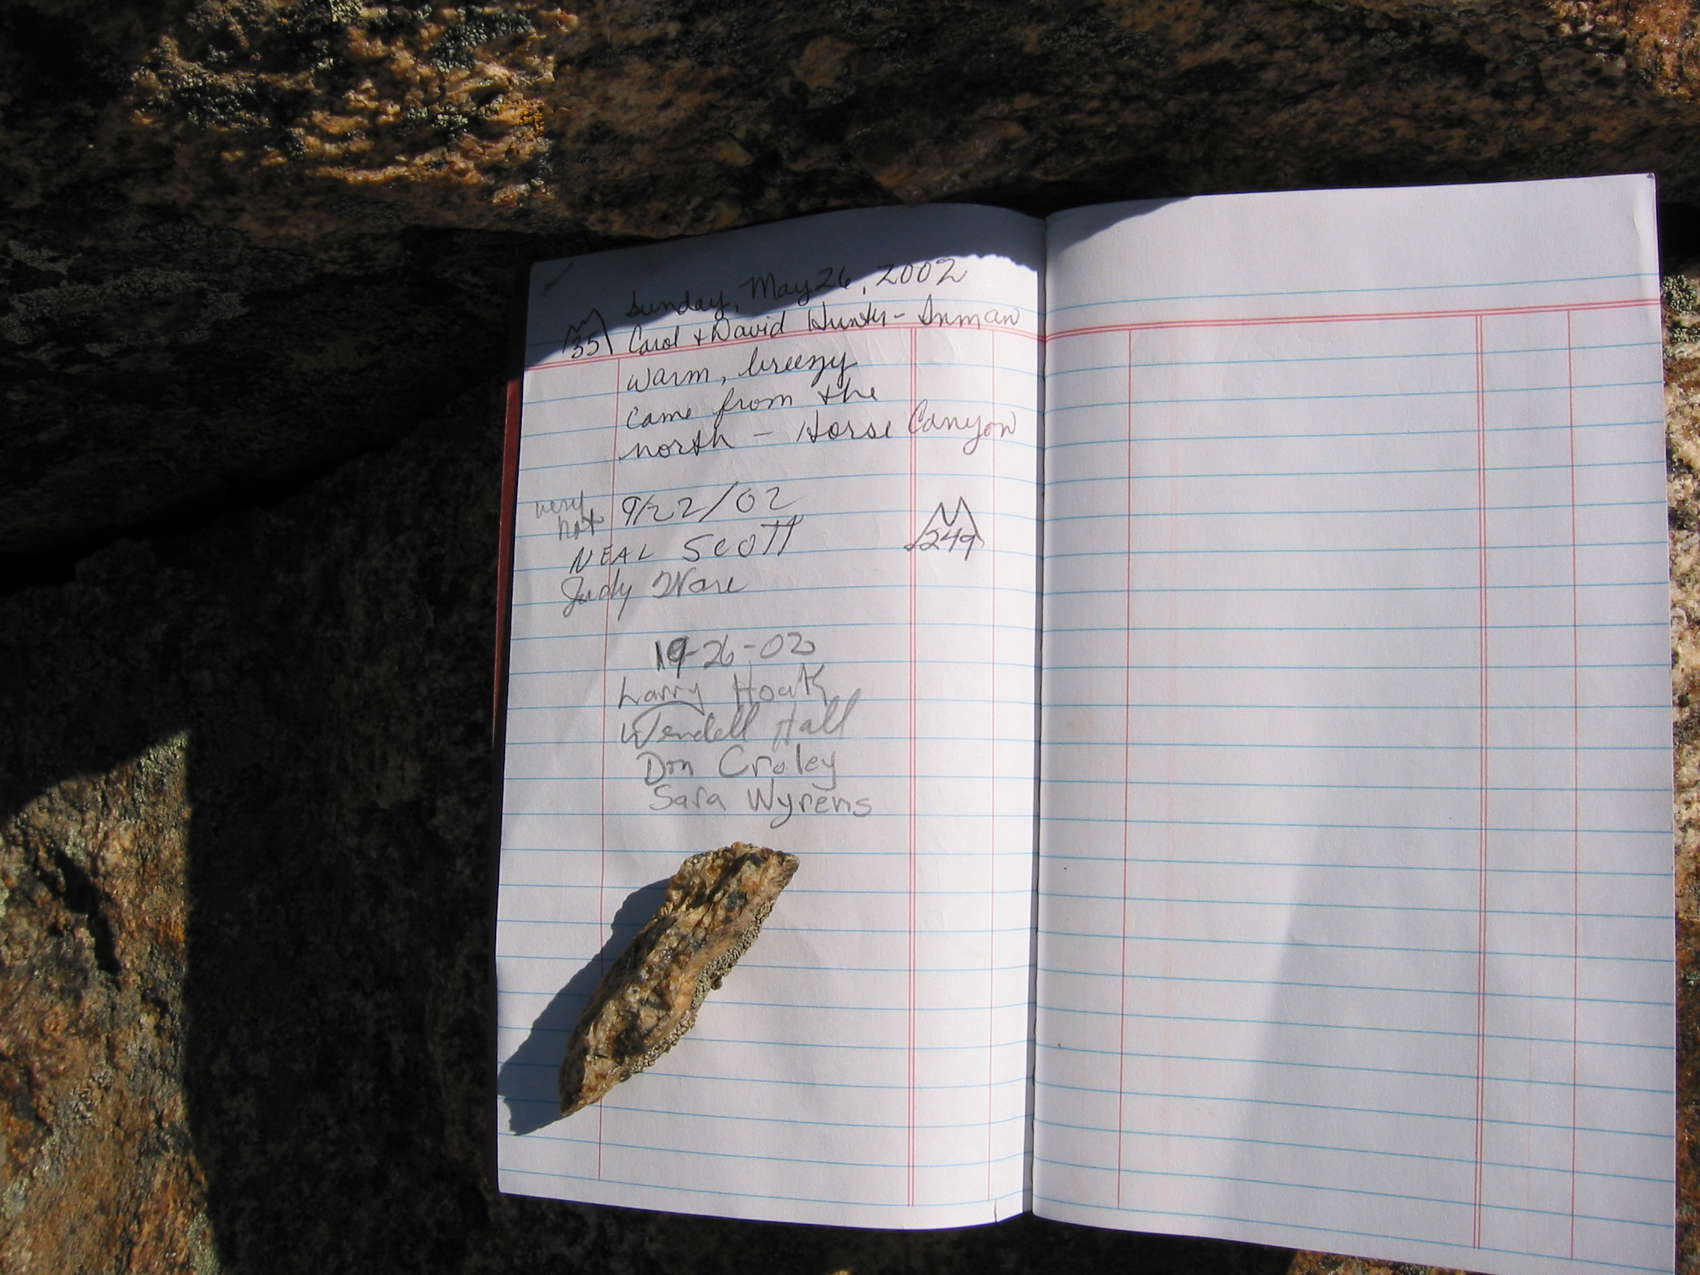 Sunday, May 26, 2002
35 Carol + David Hunter-Inman
warm, breezy
came from the
north - Horse Canyon
very hot 9/22/02
NEAL SCOTT 249
Judy Ware
19-26-02
Larry Hoak
Wendell Hall
Don Croley
Sara Wyrens